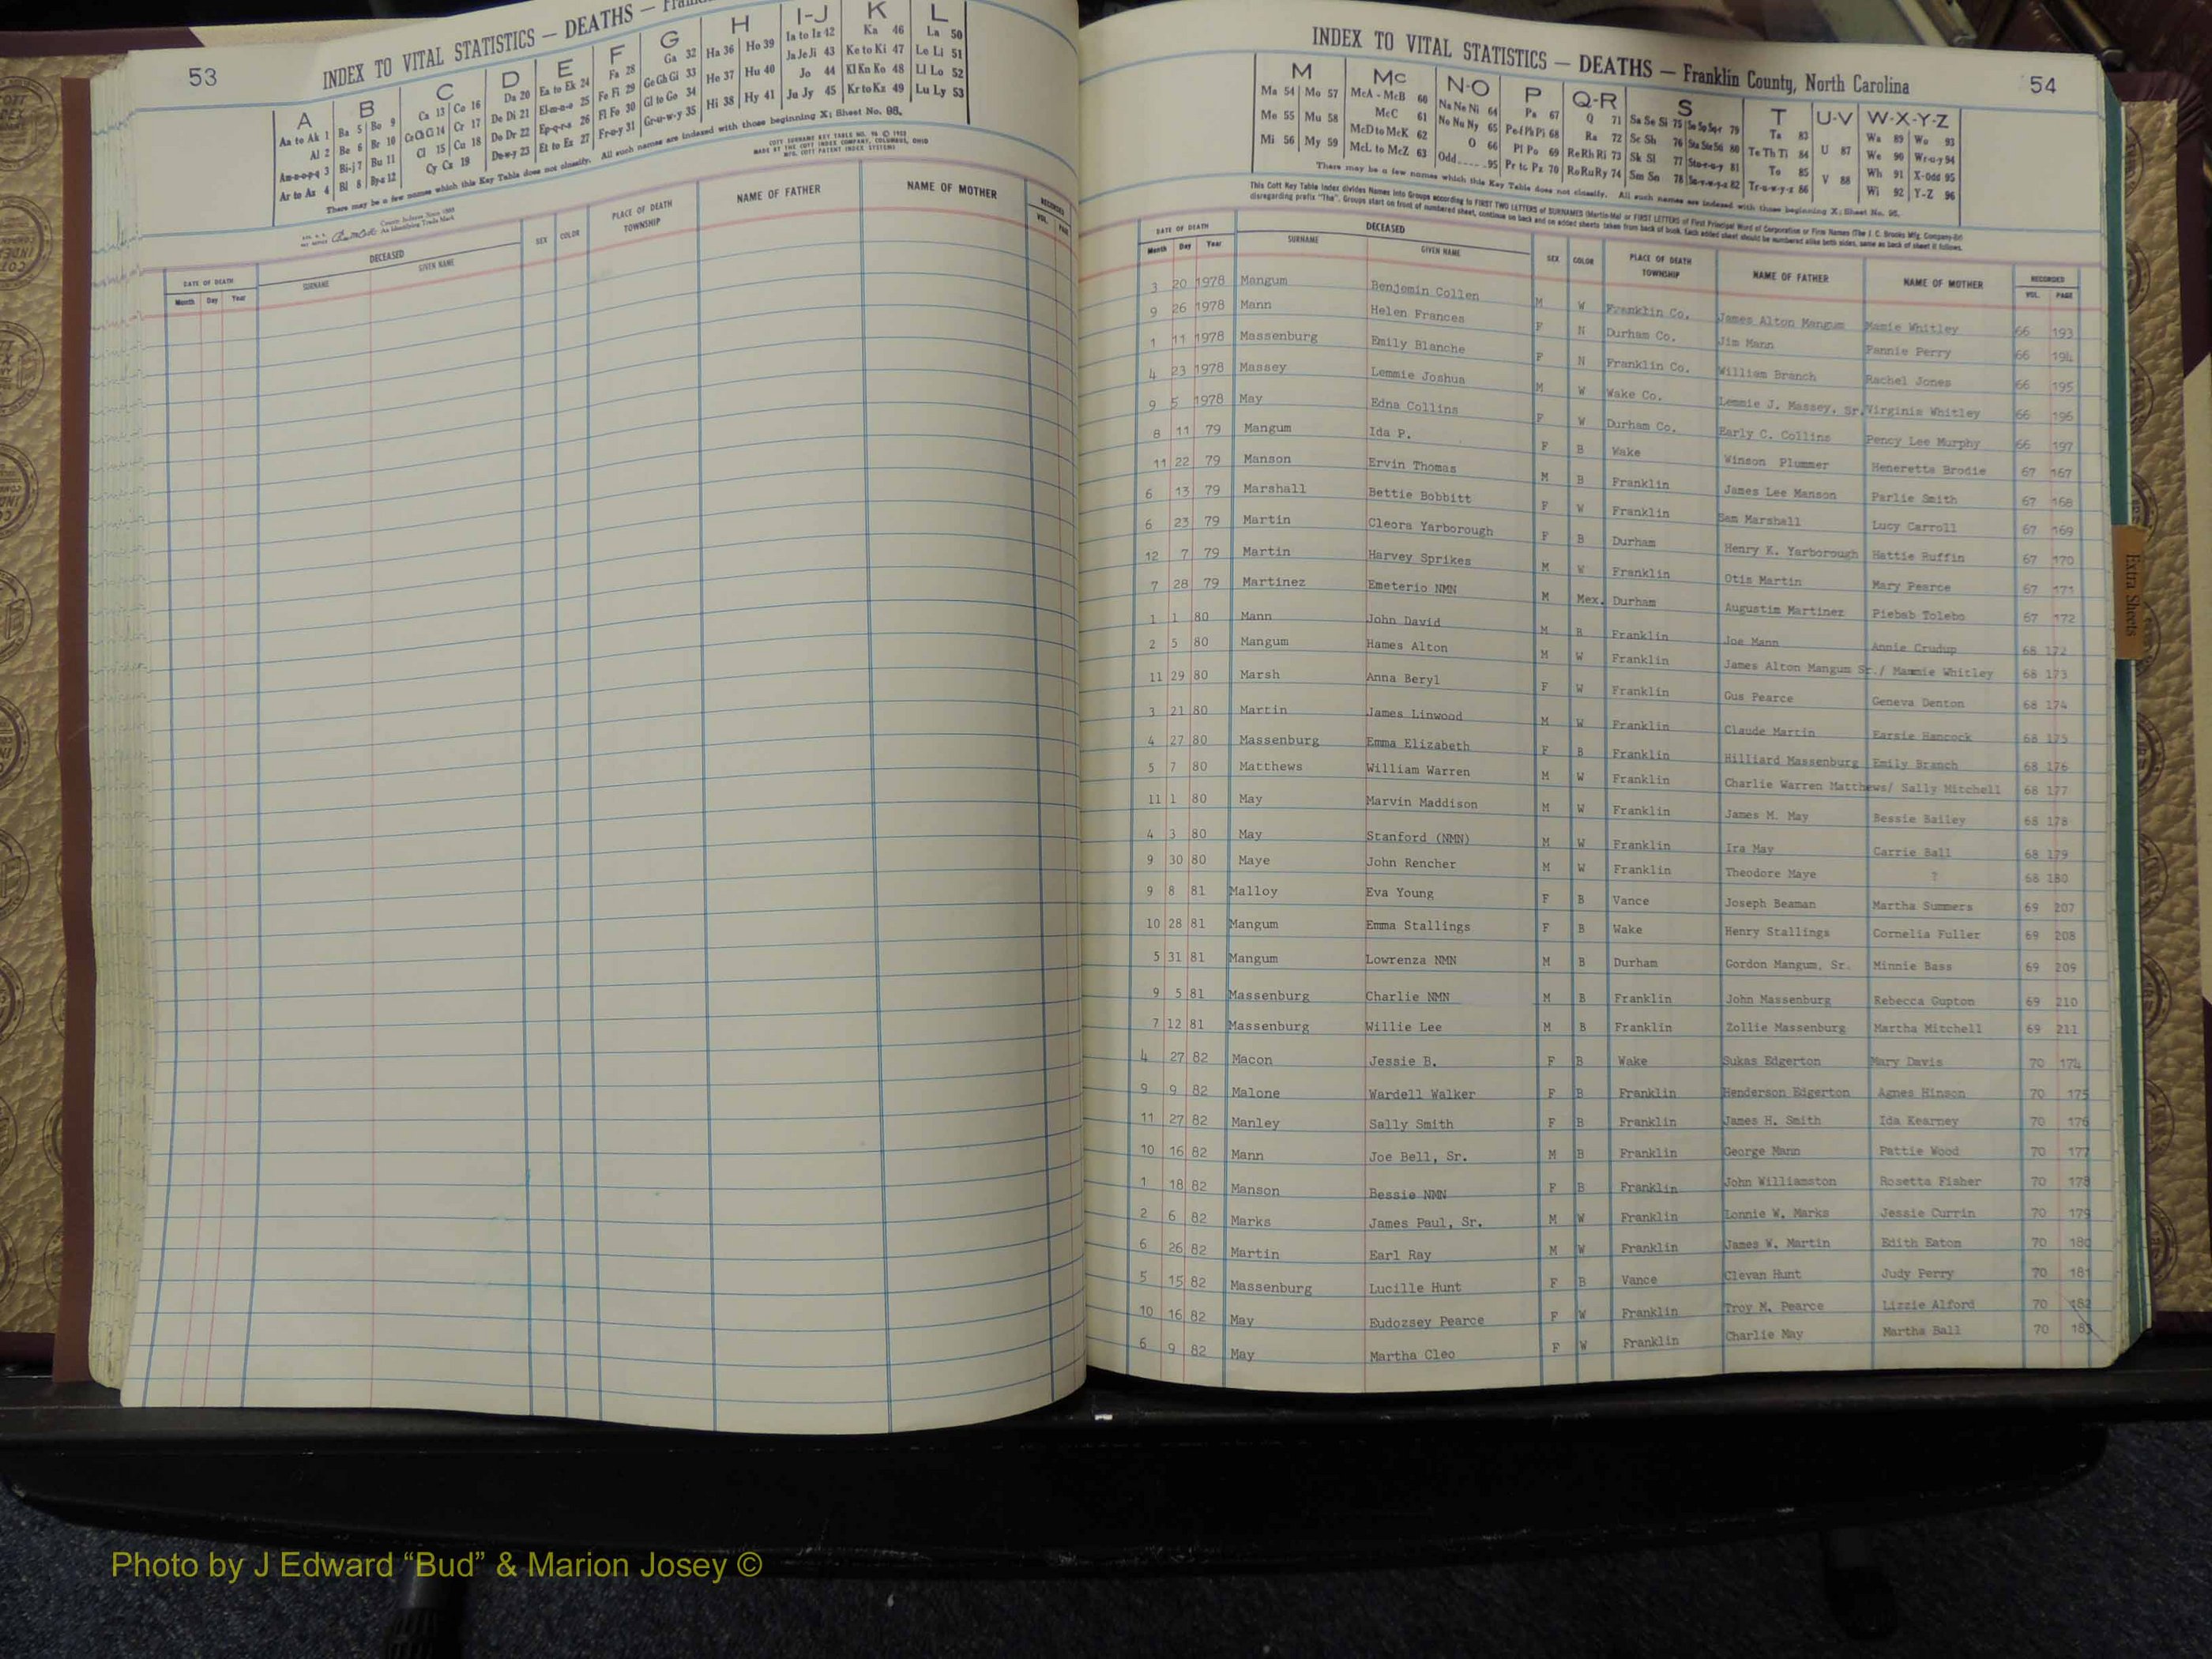 53
INDEX TO VITAL STATISTICS — DEATHS —
A B C D E F G H I-J K L
Aa to Ak 1 Ba 5 Bo 9 Ca 13 Co 16 Da 20 Ea to Ek 24 Fa 28 Ga 32 Ha 36 Ho 39 Ia to Iz 42 Ka 46 La 50
Al 2 Be 6 Br 10 Ce Ch Ci 14 Cr 17 De Di 21 El-m-n-o 25 Fe Fi 29 Ge Gh Gi 33 He 37 Hu 40 Ja Je Ji 43 Ke to Ki 47 Le Li 51
Am-n-o-p-q 3 Bi-j 7 Bu 11 Cl 15 Cu 18 Do Dr 22 Ep-q-r-s 26 Fl Fo 30 Gl to Go 34 Hi 38 Hy 41 Jo 44 Kl Kn Ko 48 Ll Lo 52
Ar to Az 4 Bl 8 By-z 12 Cy Cz 19 Du-w-y 23 Et to Ez 27 Fr-u-y 31 Gr-u-w-y 35 Ju Jy 45 Kr to Kz 49 Lu Ly 53
There may be a few names which this Key Table does not classify. All such names are indexed with those beginning X; Sheet No. 98.
COTT SURNAME KEY TABLE NO. 96 © 1953
MADE BY THE COTT INDEX COMPANY, COLUMBUS, OHIO
MFG. COTT PATENT INDEX SYSTEMS
County Indexes Since 1888
An Identifying Trade Mark
DATE OF DEATH DECEASED SEX COLOR PLACE OF DEATH TOWNSHIP NAME OF FATHER NAME OF MOTHER RECORDED
Month Day Year SURNAME GIVEN NAME VOL. PAGE
INDEX TO VITAL STATISTICS — DEATHS — Franklin County, North Carolina 54
M Mc N-O P Q-R S T U-V W-X-Y-Z
Ma 54 Mo 57 McA - McB 60 Na Ne Ni 64 Pa 67 Q 71 Sa Se Si 75 79 Ta 83 Wa 89 Wo 93
Me 55 Mu 58 McC 61 No Nu Ny 65 Pe-f Ph Pi 68 Ra 72 Sc Sh 76 Sta Ste Sti 80 Te Th Ti 84 U 87 We 90 Wr-u-y 94
Mi 56 My 59 McD to McK 62 O 66 Pl Po 69 Re Rh Ri 73 Sk Sl 77 Sto-r-u-y 81 To 85 V 88 Wh 91 X-Odd 95
McL to McZ 63 Odd 95 Pr to Pz 70 Ro Ru Ry 74 Sm Sn 78 82 Tr-u-w-y-z 86 Wi 92 Y-Z 96
There may be a few names which this Key Table does not classify. All such names are indexed with those beginning X; Sheet No. 95.
This Cott Key Table Index divides Names into Groups according to FIRST TWO LETTERS of SURNAMES (Martin-Ma) or FIRST LETTERS of First Principal Word of Corporation or Firm Names (The J. C. Brooks Mfg. Company-Br)
disregarding prefix "The". Groups start on front of numbered sheet, continue on back and on added sheets taken from back of book. Each added sheet should be numbered alike both sides, same as back of sheet it follows.
DATE OF DEATH DECEASED SEX COLOR PLACE OF DEATH TOWNSHIP NAME OF FATHER NAME OF MOTHER RECORDED
Month Day Year SURNAME GIVEN NAME VOL. PAGE
3 20 1978 Mangum Benjomin Collen M W Franklin Co. James Alton Mangum Mamie Whitley 66 193
9 26 1978 Mann Helen Frances F N Durham Co. Jim Mann Fannie Perry 66 194
1 11 1978 Massenburg Emily Blanche F N Franklin Co. William Branch Rachel Jones 66 195
4 23 1978 Massey Lemmie Joshua M W Wake Co. Lemmie J. Massey, Sr. Virginia Whitley 66 196
9 5 1978 May Edna Collins F W Durham Co. Early C. Collins Pency Lee Murphy 66 197
8 11 79 Mangum Ida P. F B Wake Winson Plummer Heneretta Brodie 67 167
11 22 79 Manson Ervin Thomas M B Franklin James Lee Manson Parlie Smith 67 168
6 13 79 Marshall Bettie Bobbitt F W Franklin Sam Marshall Lucy Carroll 67 169
6 23 79 Martin Cleora Yarborough F B Durham Henry K. Yarborough Hattie Ruffin 67 170
12 7 79 Martin Harvey Sprikes M W Franklin Otis Martin Mary Pearce 67 171
7 28 79 Martinez Emeterio NMN M Mex. Durham Augustim Martinez Piebab Tolebo 67 172
1 1 80 Mann John David M B Franklin Joe Mann Annie Crudup 68 172
2 5 80 Mangum Hames Alton M W Franklin James Alton Mangum Sr./ Mammie Whitley 68 173
11 29 80 Marsh Anna Beryl F W Franklin Gus Pearce Geneva Denton 68 174
3 21 80 Martin James Linwood M W Franklin Claude Martin Earsie Hancock 68 175
4 27 80 Massenburg Emma Elizabeth F B Franklin Hilliard Massenburg Emily Branch 68 176
5 7 80 Matthews William Warren M W Franklin Charlie Warren Matthews/ Sally Mitchell 68 177
11 1 80 May Marvin Maddison M W Franklin James M. May Bessie Bailey 68 178
4 3 80 May Stanford (NMN) M W Franklin Ira May Carrie Ball 68 179
9 30 80 Maye John Rencher M W Franklin Theodore Maye ? 68 180
9 8 81 Malloy Eva Young F B Vance Joseph Beaman Martha Summers 69 207
10 28 81 Mangum Emma Stallings F B Wake Henry Stallings Cornelia Fuller 69 208
5 31 81 Mangum Lowrenza NMN M B Durham Gordon Mangum, Sr. Minnie Bass 69 209
9 5 81 Massenburg Charlie NMN M B Franklin John Massenburg Rebecca Gupton 69 210
7 12 81 Massenburg Willie Lee M B Franklin Zollie Massenburg Martha Mitchell 69 211
4 27 82 Macon Jessie B. F B Wake Sukas Edgerton Mary Davis 70 174
9 9 82 Malone Wardell Walker F B Franklin Henderson Edgerton Agnes Hinson 70 175
11 27 82 Manley Sally Smith F B Franklin James H. Smith Ida Kearney 70 176
10 16 82 Mann Joe Bell, Sr. M B Franklin George Mann Pattie Wood 70 177
1 18 82 Manson Bessie NMN F B Franklin John Williamston Rosetta Fisher 70 178
2 6 82 Marks James Paul, Sr. M W Franklin Lonnie W. Marks Jessie Currin 70 179
6 26 82 Martin Earl Ray M W Franklin James W. Martin Edith Eaton 70 180
5 15 82 Massenburg Lucille Hunt F B Vance Clevan Hunt Judy Perry 70 181
10 16 82 May Eudozsey Pearce F W Franklin Troy M. Pearce Lizzie Alford 70 182
6 9 82 May Martha Cleo F W Franklin Charlie May Martha Ball 70 183
Extra Sheets
Photo by J Edward “Bud” & Marion Josey ©